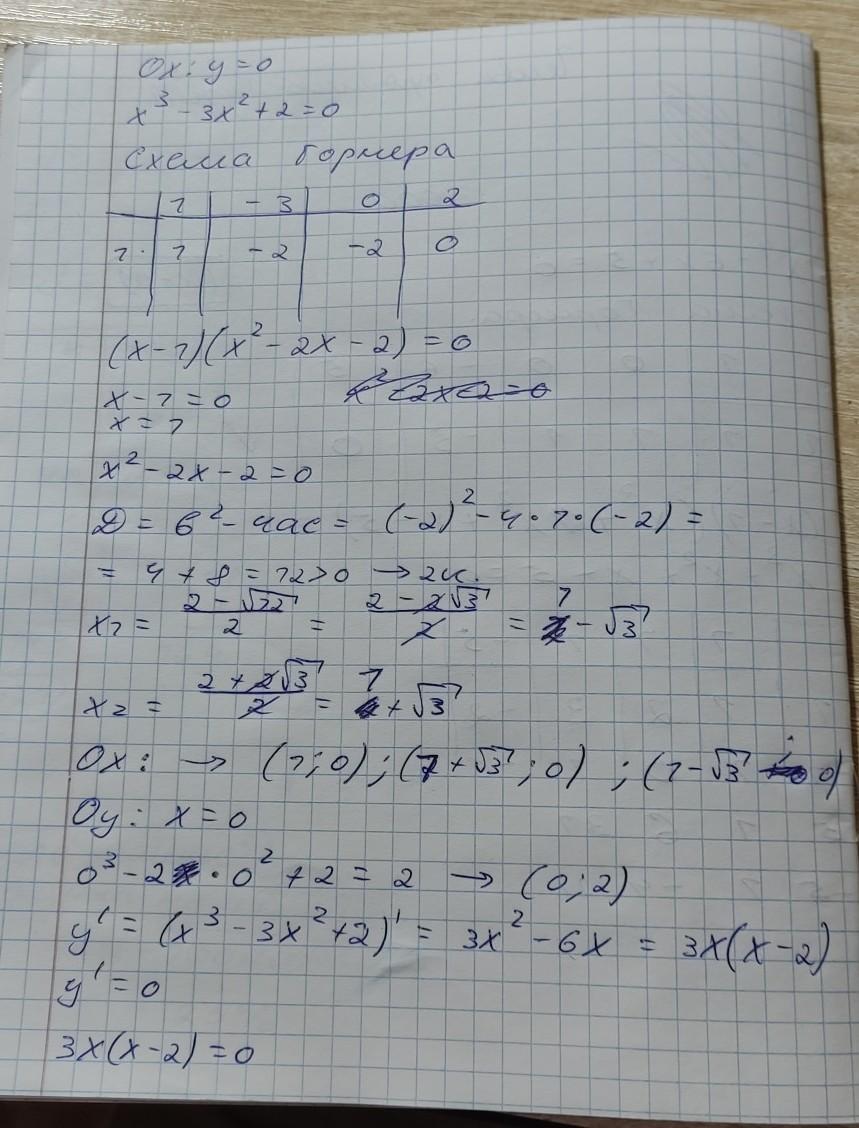 Ox: y = 0
x³ - 3x² + 2 = 0
Схема Горнера
1 | -3 | 0 | 2
1 | 1 | -2 | -2 | 0
(x - 1)(x² - 2x - 2) = 0
x - 1 = 0 x² - 2x - 2 = 0
x = 1
x² - 2x - 2 = 0
D = b² - 4ac = (-2)² - 4 · 1 · (-2) =
= 4 + 8 = 12 > 0 → 2к.
x₁ = (2 - √12)/2 = (2 - 2√3)/2 = 1 - √3
x₂ = (2 + 2√3)/2 = 1 + √3
Ox: → (1; 0); (1 + √3; 0) ; (1 - √3 ; 0)
Oy: x = 0
0³ - 2 · 0² + 2 = 2 → (0; 2)
y' = (x³ - 3x² + 2)' = 3x² - 6x = 3x(x - 2)
y' = 0
3x(x - 2) = 0